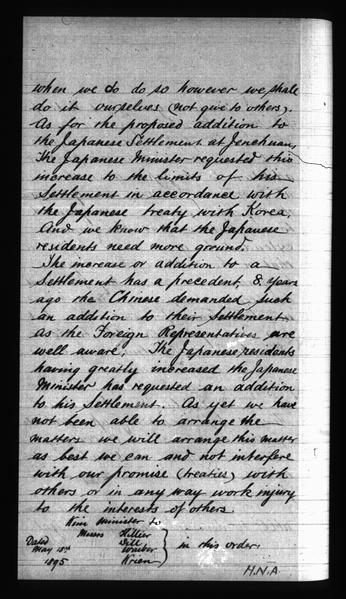 when we do do so however we shall
do it ourselves (not give to others).
As for the proposed addition to
the Japanese Settlement at Jenchuan,
The Japanese Minister requested this
increase to the limits of his
Settlement in accordance with
the Japanese treaty with Korea.
And we know that the Japanese
residents need more ground.
The increase or addition to a
Settlement has a precedent, 8 years
ago the Chinese demanded such
an addition to their Settlement
as the Foreign Representatives are
well aware. The Japanese residents
having greatly increased the Japanese
Minister has requested an addition
to his Settlement. As yet we have
not been able to arrange the
matters we will arrange this matter
as best we can and not interfere
with our promise (treaties) with
others or in any way work injury
to the interests of others.
Kim Minister to
Messrs Hillier
Sill
Waeber
Krien
in this order.
Dated
May 18th
1895
H.N.A